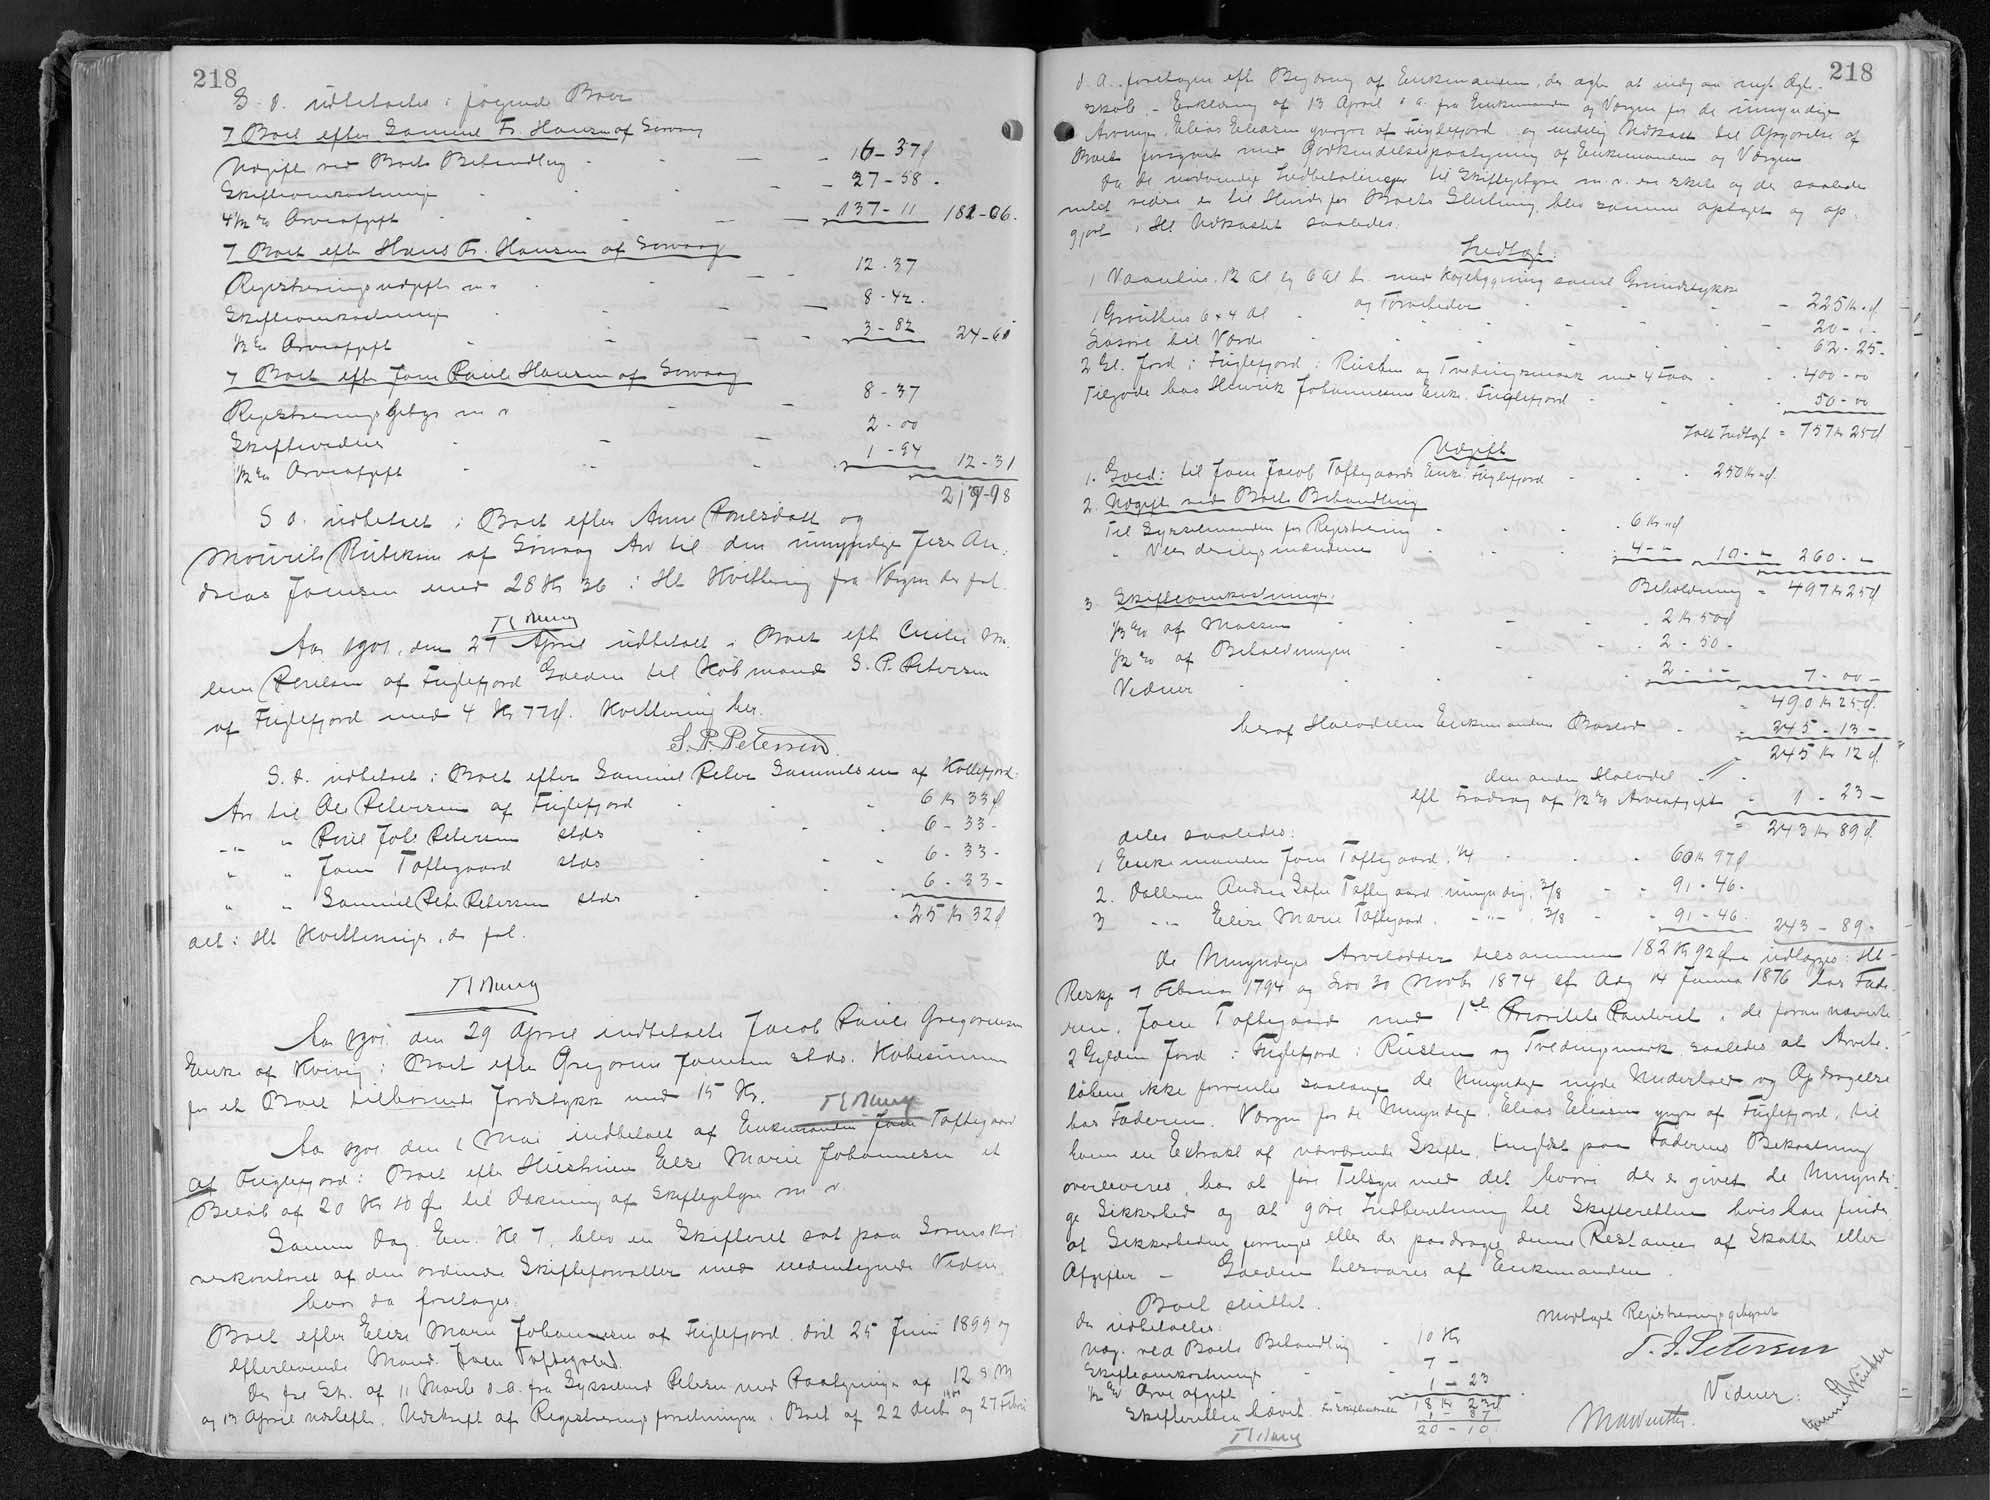 218
S. D. udbetaltes i følgende Boer
7 Boet efter Samuel Fr. Hansen af Sörvaag
Udgift ved Boets Behandling - - 16-37 ø
Skifteomkostninger - - 27-58 -
4 1/2 % Arveafgift - - 137-11 181-06.
7 Boet efter Hans Fr. Hansen af Sörvaag
Registreringsudgift m v 12-37
Skifteomkostninger 8-42.
1/2 % Arveafgift 3-82 24-61
7 Boet efter Joen Poul Hansen af Sörvaag
Registrerings Gebyr m v 8-37
Skiftevidner 2-00
1/2 % Arveafgift 1-94 12-31
217-98
S. D. udbetalt i Boet efter Anne Poulsdatt og
Mourits af Sörvaag Arv til den umyndige An-
dreas Joensen med 28 Kr 36 i Hht Kvittering fra Værgen der fol.
Aar 1901, den 27 April udbetalt i Boet eft Cicilie Ma
lene Poulsen af Fuglefjord Gælden til Købmand S. P. Petersen
af Fuglefjord med 4 Kr 77 ø. Kvittering her.
S. P. Petersen.
S. D. udbetalt i Boet efter Samuel Peter Samuelsen af Kollefjord:
Arv til Ole Petersen af Fuglefjord - - 6 Kr 33 ø
-"- " Poul Joh. Petersen stds - - 6-33-
" " Joen Toftegaard stds - - 6-33-
" " Samuel Peter Petersen stds - - 6-33-
- 25 Kr 32 ø
alt i Hht Kvitteringer, der fol.
Aar 1901 den 29 April indbetalte Jacob Paule Gregoriussen
Enke af Kvivig i Boet efter Gregorius Joensen stds. Købesummen
for et Boet tilhørende Jordstykke med 15 Kr.
Aar 1901 den 1 Mai indbetalt af Enkemanden Joen Toftegaard
af Fuglefjord i Boet efter Hustruen Else Marie Johannesen et
Beløb af 20 Kr 10 Øre til Dækning af Skiftegebyr m v.
Samme Dag, Em. Kl 7, blev en Skifteret sat paa Sorenskri-
verkontoret af den ordinære Skifteforvalter med undertegnede Vidner
hvor da foretoges:
Boet efter Else Marie Johannesen af Fuglefjord, død 25 Juni 1899 og
efterlevende Mand Joen Toftegaard.
Der fol Skr. af 11 Marts d. A. fra Sysselmd Petersen med Paategninger af 12 s M
og 13 April næstefter, Udskrift af Registreringsforretningen i Boet af 22 Decb og 27 Febr
218
d. A. foretagen eft Begæring af Enkemanden, der agter at indgaa nyt Ægte-
skab, - Erklæring af 13 April d. A. fra Enkemanden og Værgen for de umyndige
Arvinger, Elias Eliasen yngre af Fuglefjord, og endelig Udkast til Opgørelse af
Boet forsynet med Godkendelsespaategning af Enkemanden og Værgen
Da de nødvendige Indbetalinger til Skiftegebyr m. v. ere skete og der saaledes
intet videre er til Hinder for Boets Slutning, blev samme optaget og op-
gjort i Hht Udkastet saaledes:
Indtægt:
1 Vaanehus 12 Al lg 6 Al br. med Køjebygning samt Grundstykke
og Tørveleden - - 225 Kr - ø
1 Grouthus 6 x 4 Al - - 20 - -
Løsøre til Værdi - - 62-25-
2 Gl. Jord i Fuglefjord i Rusten og Tvedingsmark med 4 Faar - - 400-00
Tilgode hos Henrik Johannesens Enke Fuglefjord - - 50-00
Ialt Indtægt = 757 Kr 25 ø
Udgift
1. Gæld: til Joen Jacob Toftegaards Enke Fuglefjord - - 250 Kr - ø
2. Udgift ved Boets Behandling
Til Sysselmanden for Registrering - - 6 Kr - ø
- Vurderingsmændene - - 4 - - 10 - - 260 - -
Beholdning = 497 Kr 25 ø
3 Skifteomkostninger:
1/3 % af Massen - - 2 Kr 50 ø
1/2 % af Beholdningen - - 2-50-
Vidner - - 2 - - 7-00-
= 490 Kr 25 ø.
heraf Halvdelen Enkemandens Boslod - - 245-13-
den anden Halvdel 245 Kr 12 ø
eft Fradrag af 1/2 % Arveafgift - 1-23-
= 243 Kr 89 ø.
deles saaledes:
1 Enkemanden Joen Toftegaard 1/4 - - 60 Kr 97 ø
2. Datteren Andrea Sofie Toftegaard umyndig 3/8 - - 91-46-
3 -"- Elise Marie Toftegaard -"- 3/8 - - 91-46- 243-89-
De Umyndiges Arvelodder tilsammen 182 Kr 92 Øre udlægges i Hht
Reskr. 7 Februar 1794 og Lov 30 Novb 1874 cf Adg 14 Januar 1876 hos Fade-
ren, Joen Toftegaard med 1ste Prioritets Panteret i de foran nævnte
2 Gylden Jord i Fuglefjord i Rusten og Tvedingsmark, saaledes at Arvelo-
løbene ikke forrentes saalænge de Umyndige nyde Underhold og Opdragelse
hos Faderen. Værgen for de Umyndige, Elias Eliasen yngre af Fuglefjord, til
hvem en Extrakt af nærværende Skifte, tinglæst paa Faderens Bekostning
overleveres, har at føre Tilsyn med det hvori der er givet de Umyndi-
ge Sikkerhed og at gøre Indberetning til Skifteretten hvis han finder
at Sikkerheden forringes eller der paadrages denne Restancer af Skatter eller
Afgifter - Gælden tilsvares af Enkemanden.
Boet sluttet.
Der udbetaltes:
Udg. ved Boets Behandling - 10 Kr
Skifteomkostninger - 7 -
1/2 % Arveafgift - 1-23
Skifteretten hævet. 18 Kr 23 ø
1-87
20-10
Modtaget Registreringsgebyret
Vidner: